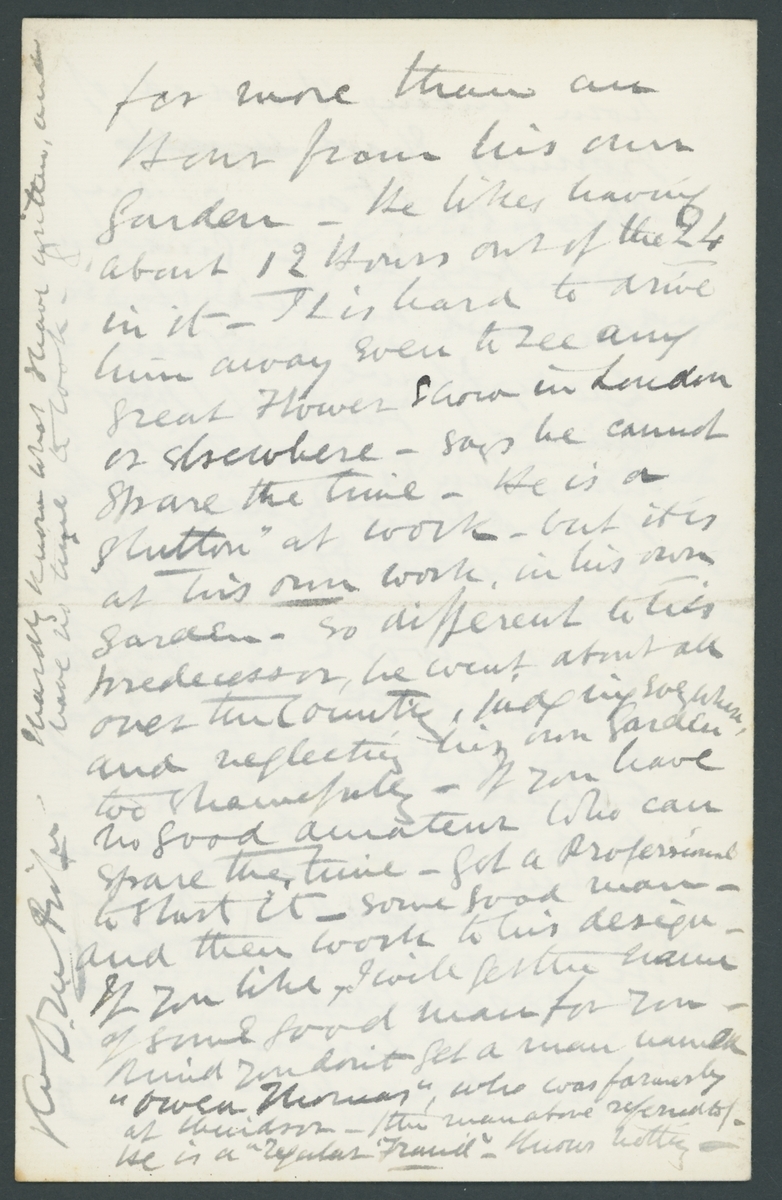 for more than an
Hour from his own
Garden - He likes having
about 12 Hours out of the 24
in it - It is hard to drive
him away even to see any
great Flower Show in London
or elsewhere - says he cannot
spare the time - He is a
"glutton" at work - but it is
at his own work, in his own
Garden - so different to his
predecessor, he went about all
over the Country, judging everywhere,
and neglecting his own Garden
too shamefully - If you have
no good amateur who can
spare the time - Got a Professional
to start it - some good man -
and then work to his design -
If you like, I will get the name
of some good man for you -
Mind you don't get a man named
"Owen Thomas", who was formerly
at Windsor - (the man above referred to) -
He is a "regular "Fraud" - Knows nothing -
I hardly know what I have written, and
have no time to look -